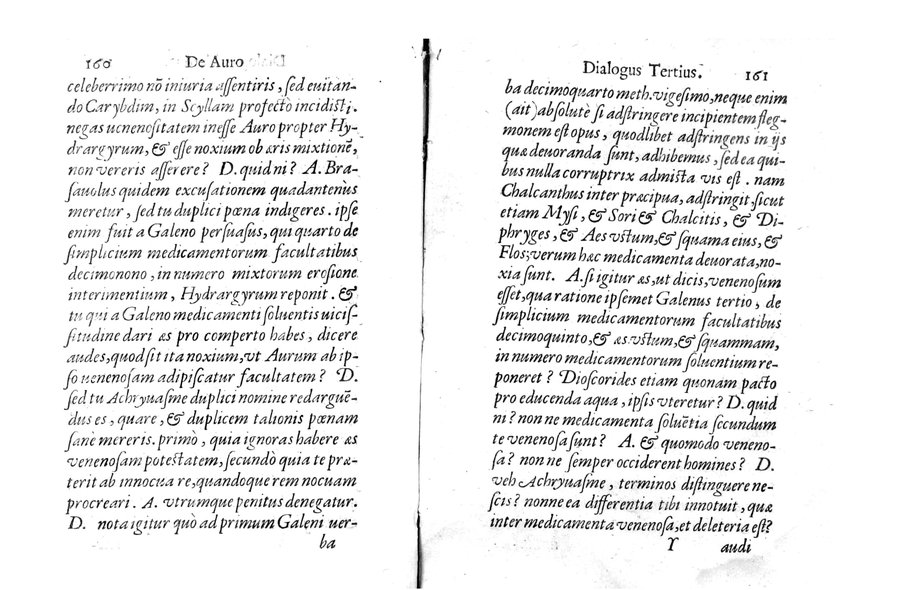 160 De Auro
celeberrimo nō iniuria aſſentiris, ſed euitan-
do Carybdim, in Scyllam profecto incidiſti,
negas uenenoſitatem ineſſe Auro propter Hy-
drargyrum, & eſſe noxium ob æris mixtionē,
non vereris aſſerere? D. quid ni? A. Bra-
ſauolus quidem excuſationem quadantenus
meretur, ſed tu duplici pœna indigeres. ipſe
enim fuit a Galeno perſuaſus, qui quarto de
ſimplicium medicamentorum facultatibus
decimonono, in numero mixtorum eroſione
interimentium, Hydrargyrum reponit. &
tu qui a Galeno medicamenti ſoluentis uiciſ-
ſitudine dari æs pro comperto habes, dicere
audes, quod ſit ita noxium, vt Aurum ab ip-
ſo uenenoſam adipiſcatur facultatem? D.
ſed tu Achryuaſme duplici nomine redarguē-
dus es, quare, & duplicem talionis pœnam
ſanè mereris. primò, quia ignoras habere æs
venenoſam poteſtatem, ſecundò quia te præ-
terit ab innocua re, quandoque rem nocuam
procreari. A. vtrumque penitus denegatur.
D. nota igitur quò ad primum Galeni uer-
ba
Dialogus Tertius. 161
ba decimoquarto meth. vigeſimo, neque enim
(ait) abſolutè ſi adſtringere incipientem fleg-
monem eſt opus, quodlibet adſtringens in ijs
quæ deuoranda ſunt, adhibemus, ſed ea qui-
bus nulla corruptrix admiſta vis eſt. nam
Chalcanthus inter præcipua, adſtringit, ſicut
etiam Myſi, & Sori & Chalcitis, & Di-
phryges, & Aes vſtum, & ſquama eius, &
Flos; verum hæc medicamenta deuorata, no-
xia ſunt. A. ſi igitur æs, ut dicis, venenoſum
eſſet, qua ratione ipſemet Galenus tertio, de
ſimplicium medicamentorum facultatibus
decimoquinto, & æs vſtum, & ſquammam,
in numero medicamentorum ſoluentium re-
poneret? Dioſcorides etiam quonam pacto
pro educenda aqua, ipſis vteretur? D. quid
ni? non ne medicamenta ſoluētia ſecundum
te venenoſa ſunt? A. & quomodo veneno-
ſa? non ne ſemper occiderent homines? D.
veh Achryuaſme, terminos diſtinguere ne-
ſcis? nonne ea differentia tibi innotuit, quæ
inter medicamenta venenoſa, et deleteria eſt?
Y audi